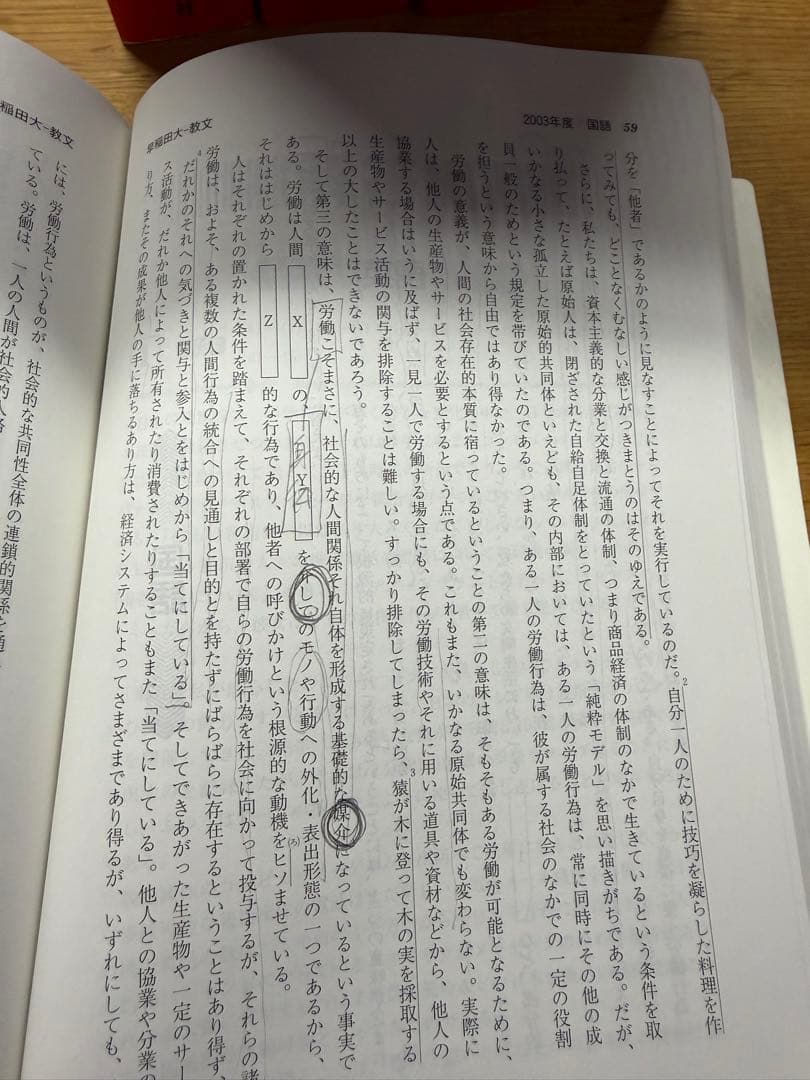 2003年度 国語 59
早稲田大-教文
分を「他者」であるかのように見なすことによってそれを実行しているのだ。2自分一人のために技巧を凝らした料理を作
ってみても、どことなくむなしい感じがつきまとうのはそのゆえである。
さらに、私たちは、資本主義的な分業と交換と流通の体制、つまり商品経済の体制のなかで生きているという条件を取
り払って、たとえば原始人は、閉ざされた自給自足体制をとっていたという「純粋モデル」を思い描きがちである。だが、
いかなる小さな孤立した原始的共同体といえども、その内部においては、ある一人の労働行為は、常に同時にその他の成
員一般のためという規定を帯びていたのである。つまり、ある一人の労働行為は、彼が属する社会のなかでの一定の役割
を担うという意味から自由ではあり得なかった。
労働の意義が、人間の社会存在的本質に宿っているということの第二の意味は、そもそもある労働が可能となるために、
人は、他人の生産物やサービスを必要とするという点である。これもまた、いかなる原始共同体でも変わらない。実際に
協業する場合はいうに及ばず、一見一人で労働する場合にも、その労働技術やそれに用いる道具や資材などから、他人の
生産物やサービス活動の関与を排除することは難しい。すっかり排除してしまったら、3猿が木に登って木の実を採取する
以上の大したことはできないであろう。
そして第三の意味は、労働こそまさに、社会的な人間関係それ自体を形成する基礎的な媒介になっているという事実で
ある。労働は人間 X の、 Y を介してのモノや行動への外化・表出形態の一つであるから、
それははじめから Z 的な行為であり、他者への呼びかけという根源的な動機をヒソ(ろ)ませている。
人はそれぞれの置かれた条件を踏まえて、それぞれの部署で自らの労働行為を社会に向かって投与するが、それらの諸
労働は、およそ、ある複数の人間行為の統合への見通しと目的とを持たずにばらばらに存在するということはあり得ず、
4だれかのそれへの気づきと関与と参入とをはじめから「当てにしている」。そしてできあがった生産物や一定のサー
ス活動が、だれか他人によって所有されたり消費されたりすることもまた「当てにしている」。他人との協業や分業の
り方、またその成果が他人の手に落ちるあり方は、経済システムによってさまざまであり得るが、いずれにしても、
稲田大-教文
には、労働行為というものが、社会的な共同性全体の連鎖的関係を通
ている。労働は、一人の人間が社会的人格